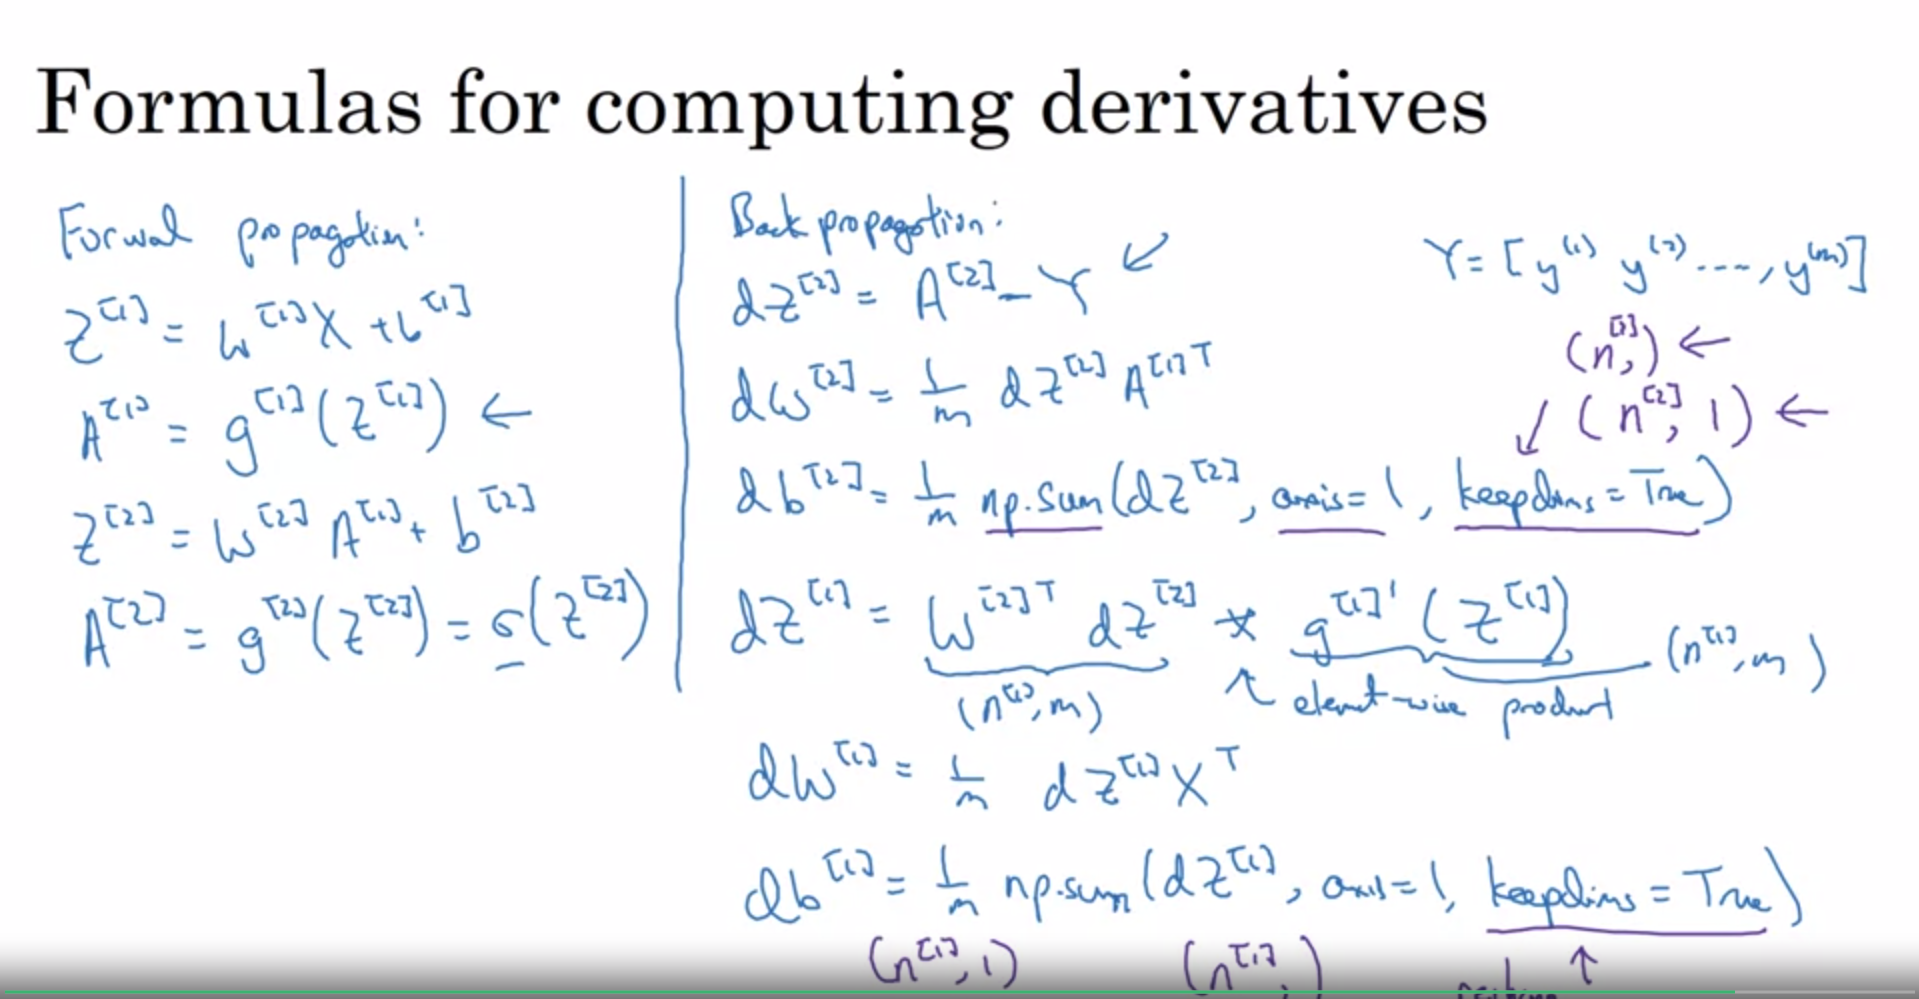 Formulas for computing derivatives
Forwal propagation:
Z^[1] = W^[1]X + b^[1]
A^[1] = g^[1](Z^[1]) ←
Z^[2] = W^[2] A^[1] + b^[2]
A^[2] = g^[2](Z^[2]) = σ(Z^[2])
Back propagation:
dZ^[2] = A^[2] - Y ↙
dW^[2] = 1/m dZ^[2] A^[1]T
db^[2] = 1/m np.sum(dZ^[2], axis=1, keepdims=True)
dZ^[1] = W^[2]T dZ^[2] * g^[1]'(Z^[1])
(n^[1], m) ↖ element-wise product (n^[1], m)
dW^[1] = 1/m dZ^[1] X^T
db^[1] = 1/m np.sum(dZ^[1], axis=1, keepdims=True)
(n^[1], 1) (n^[1],) ↑
Y = [y^(1) y^(2) ...., y^(m)]
(n^[2],) ←
↙ (n^[2], 1) ←